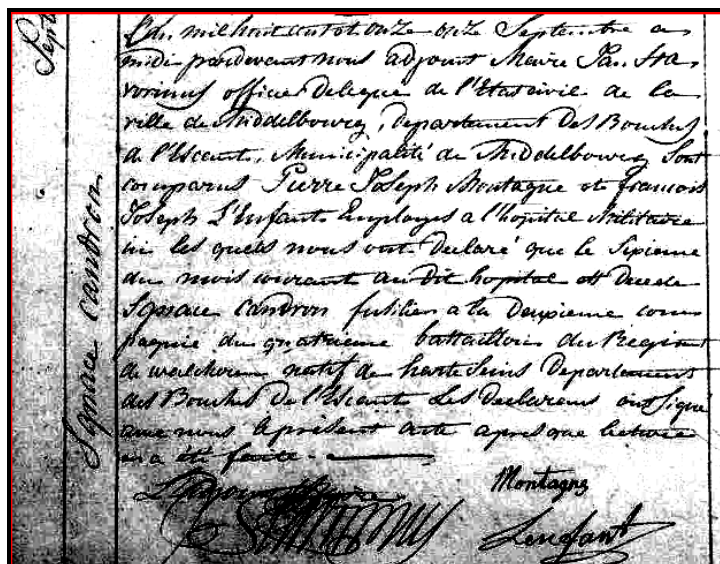 Sept
Ignace Candron
L'an mil huit cent et onze onze Septembre a
midi pardevant nous adjoint Maire Jan Sta,
vorinus officier Delegue de l'Etat civil de la
ville de Middelbourg, departement Des Bouches
de l'Escaut, Municipalité de Middelbourg Sont
comparus Pierre Joseph Montagne et francois
Joseph L'Enfant Employes a l'hopital Militaire
ici les quels nous ont declaré que le Sixieme
du mois courant au dit hopital est Decede
Ignace Candron fusilier a la Deuxieme com
pagnie du quatrieme battaillon du Regiment
de walcheren natif de Departement
des Bouches de l'Escaut Les declarans ont Signé
avec nous le présent acte apres que lecture
en a été faite.
L'adjoint Maire
Montagne
Lenfant